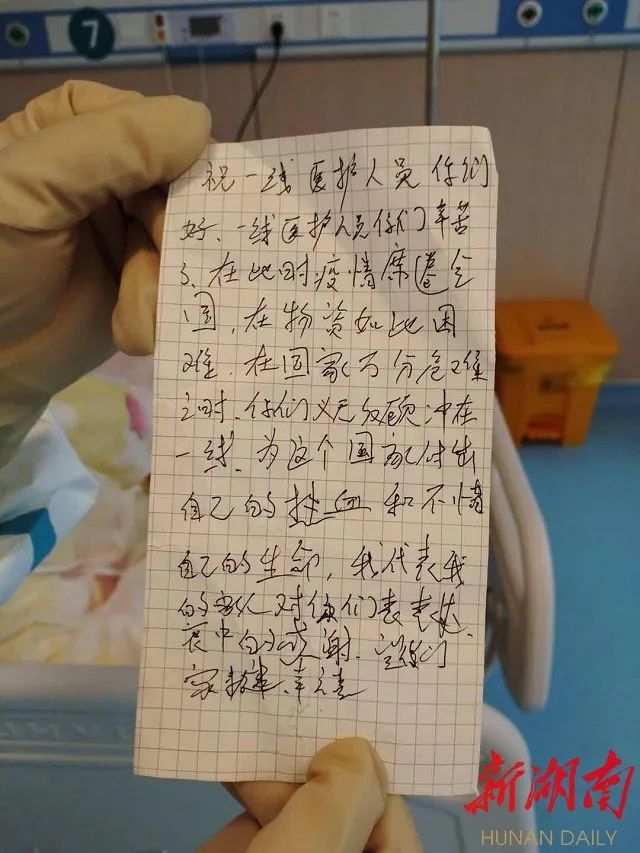 7
祝一线医护人员你们
好、一线医护人员你们辛苦
了、在此时疫情席卷全
国,在物资如此困
难,在国家万分危难
之时、你们义无反顾冲在
一线、为这个国家付出
自己的热血和不惜
自己的生命,我代表我
的家人对你们表表达
衷中的感谢.望你们
家
新湖南
HUNAN DAILY